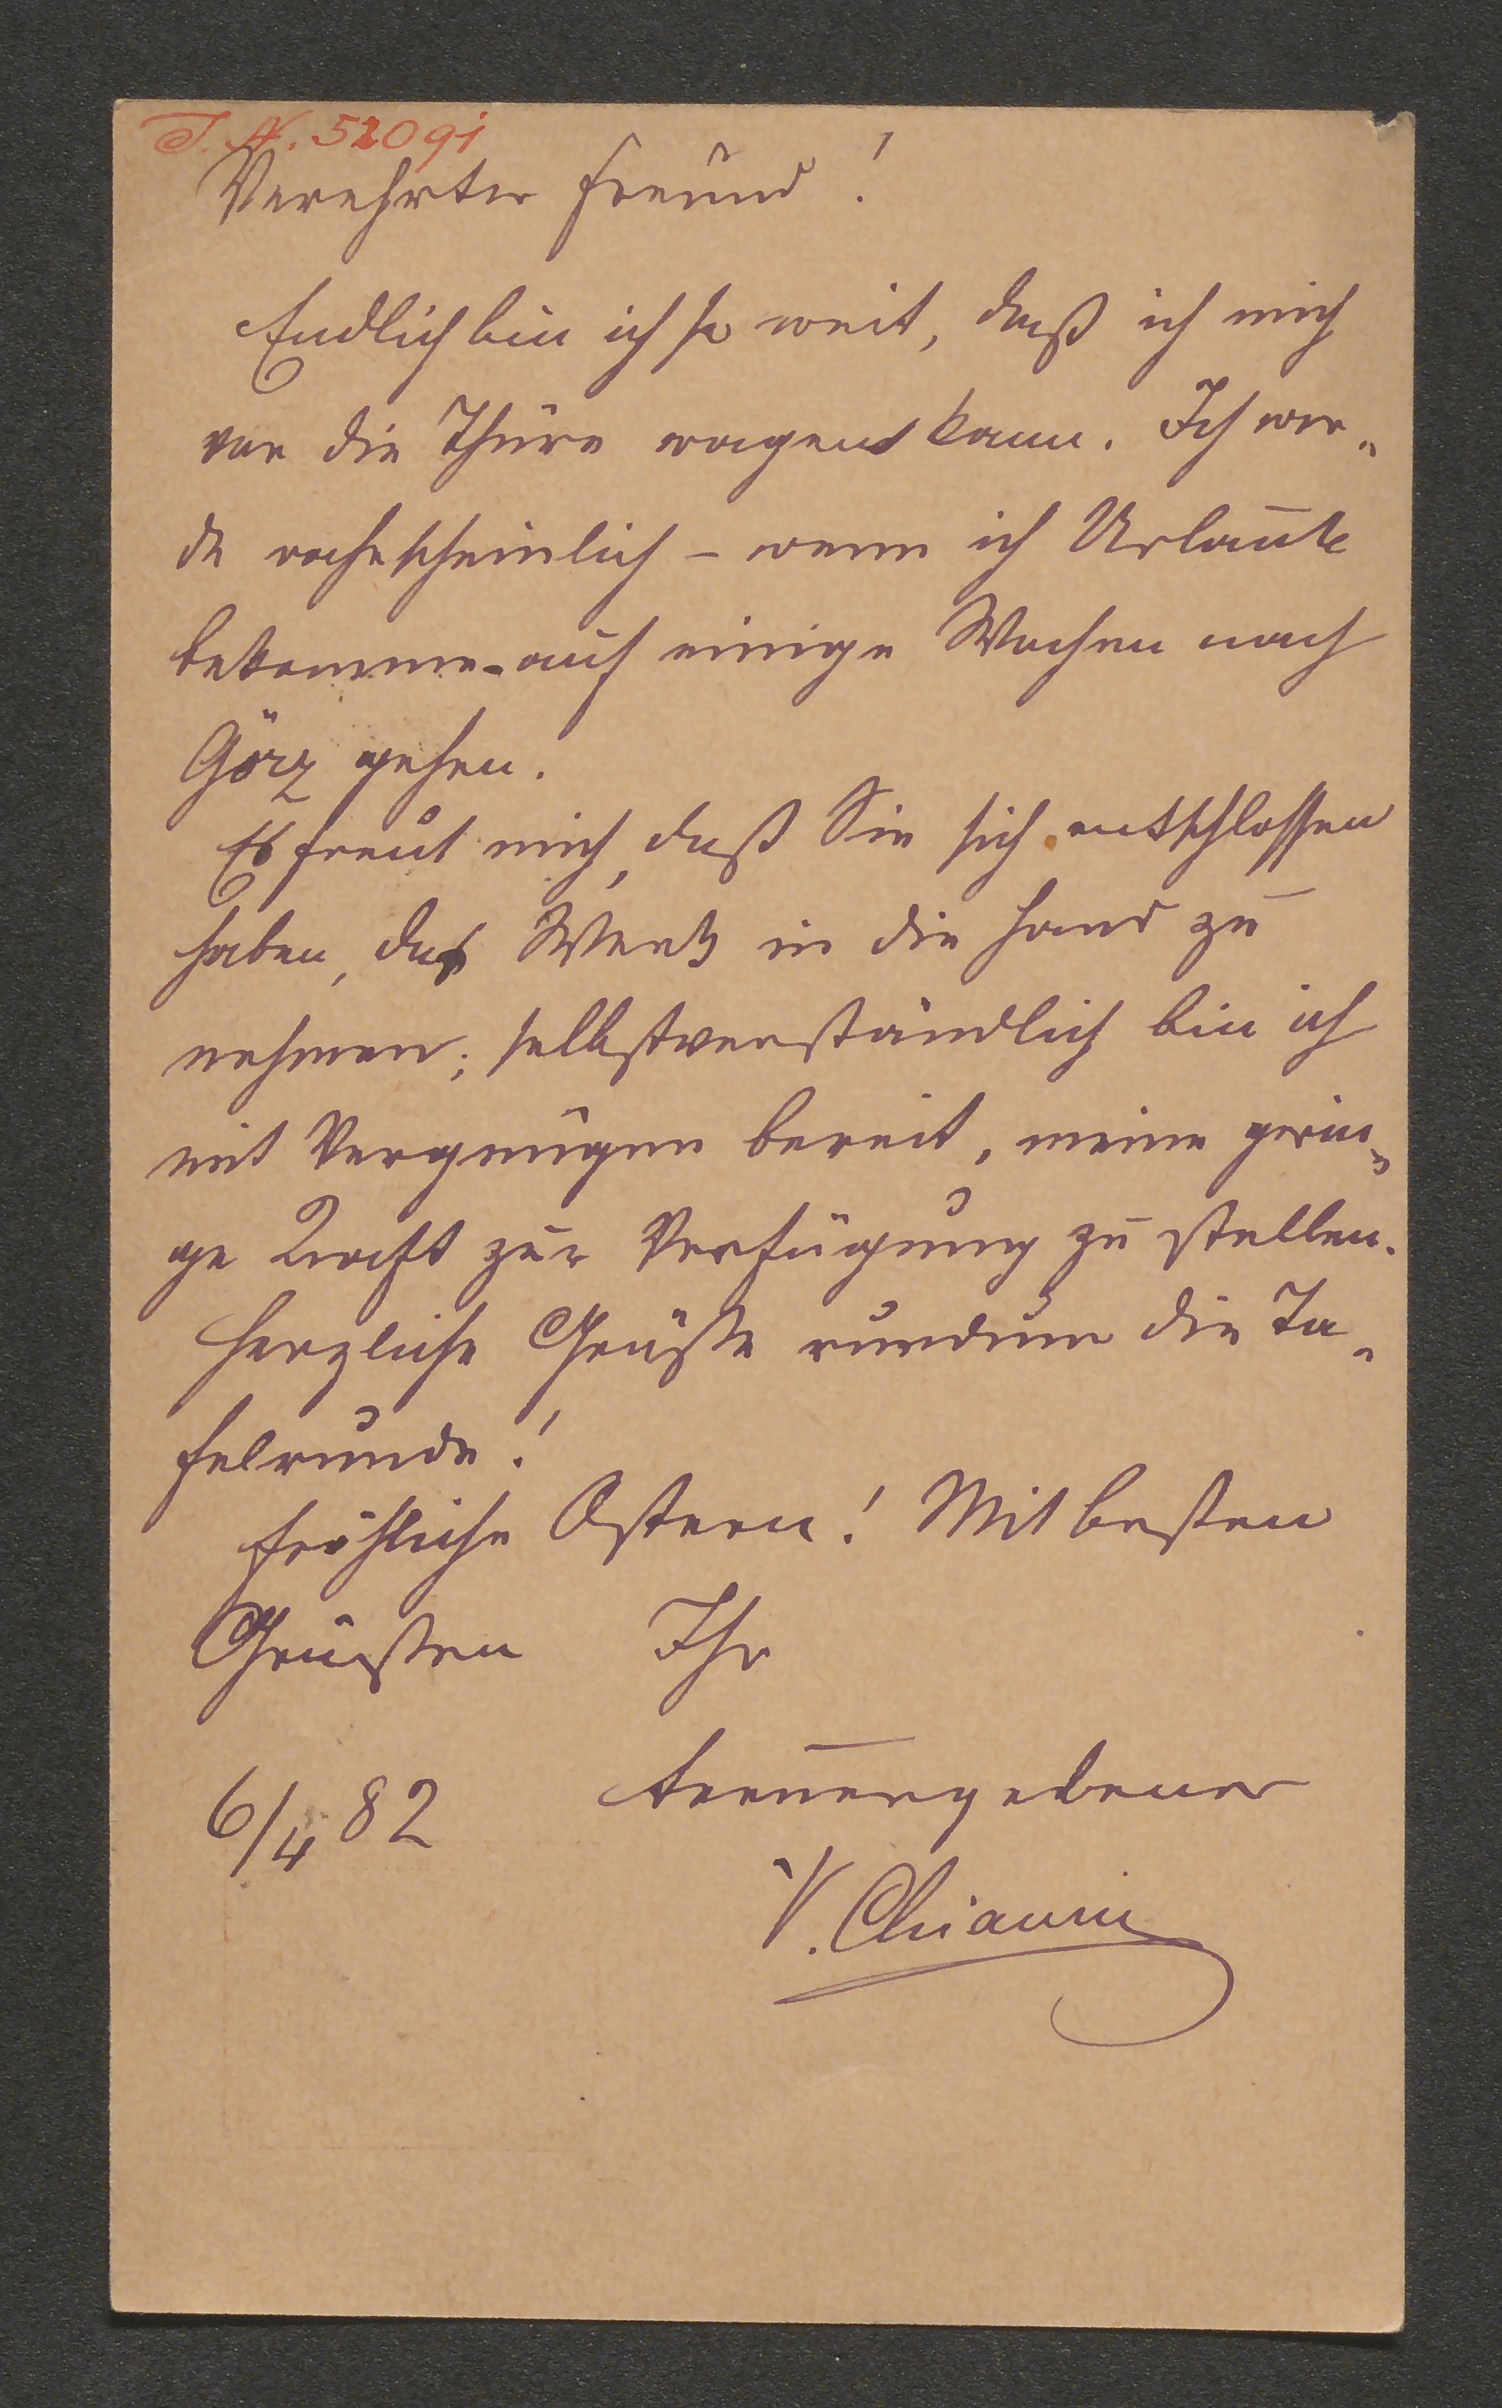 I. N. 52091
Verehrter Freund!
Endlich bin ich so weit, daß ich mich
vor die Thüre wagen kann. Ich wer-
de wahrscheinlich – wenn ich Urlaub
bekomme – auf einige Wochen nach
Görz gehen.
Es freut mich, daß Sie sich entschlossen
haben, das Werk in die Hand zu
nehmen; selbstverständlich bin ich
mit Vergnügen bereit, meine gerin-
ge Kraft zur Verfügung zu stellen.
Herzliche Grüße rundum die Ta-
felrunde!
Fröhliche Ostern! Mit besten
Grüßen Ihr
treuergebener
6/4 82
V. Chiavacci